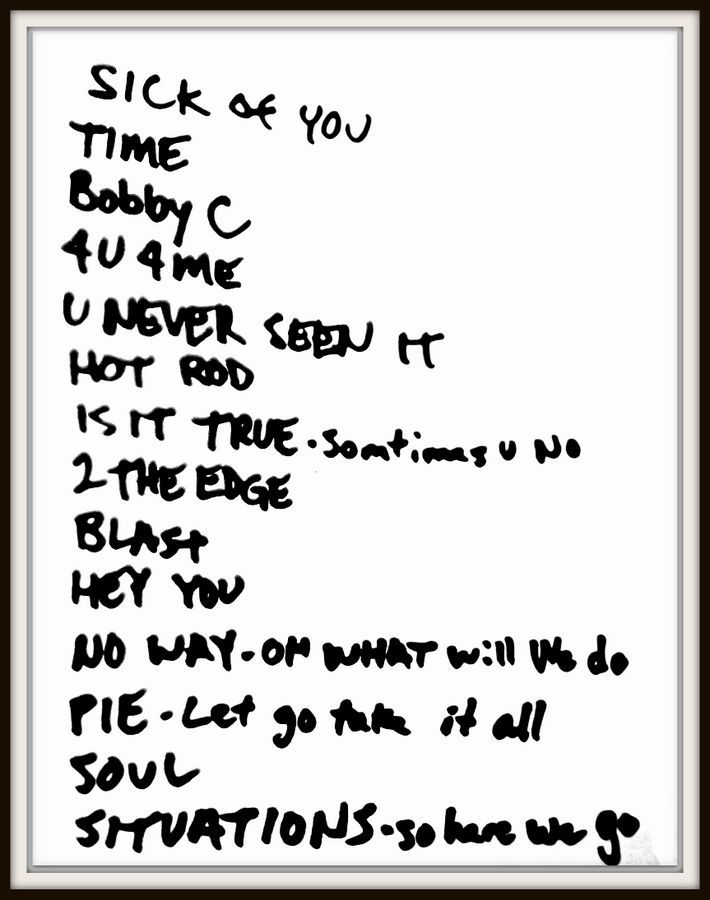 SICK OF YOU
TIME
Bobby C
4U 4 ME
U NEVER SEEN IT
HOT ROD
IS IT TRUE. Somtimes U NO
2 THE EDGE
BLASt
HEY YOU
NO WAY-OH WHAT will We do
PIE-Let go take it all
SOUL
SITUATIONS-So here we go